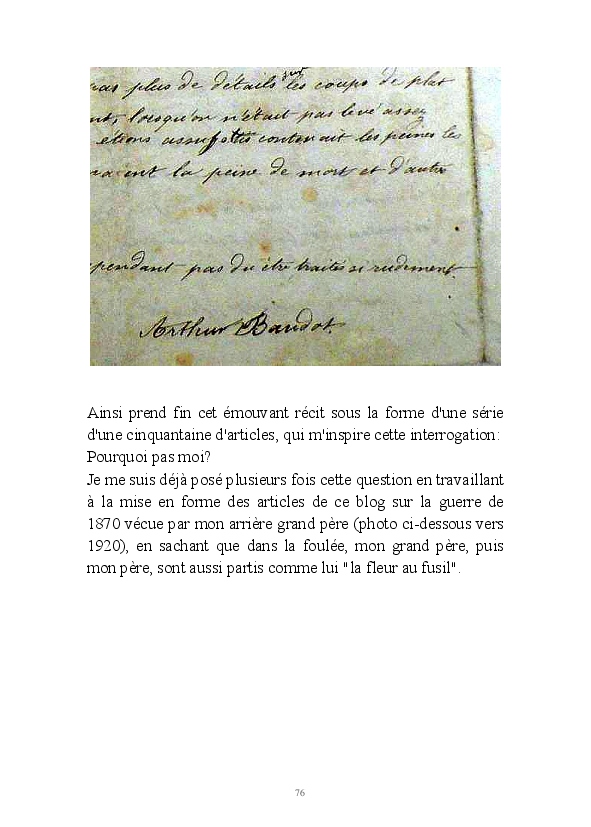 pas plus de détails sur les coups de plat
lorsqu'on n'était pas levé assez
étions assujettis contenait les peines les
la peine de mort et d'autre
pendant pas du être traités si rudement
Arthur Baudot.
Ainsi prend fin cet émouvant récit sous la forme d'une série
d'une cinquantaine d'articles, qui m'inspire cette interrogation:
Pourquoi pas moi?
Je me suis déjà posé plusieurs fois cette question en travaillant
à la mise en forme des articles de ce blog sur la guerre de
1870 vécue par mon arrière grand père (photo ci-dessous vers
1920), en sachant que dans la foulée, mon grand père, puis
mon père, sont aussi partis comme lui "la fleur au fusil".
76